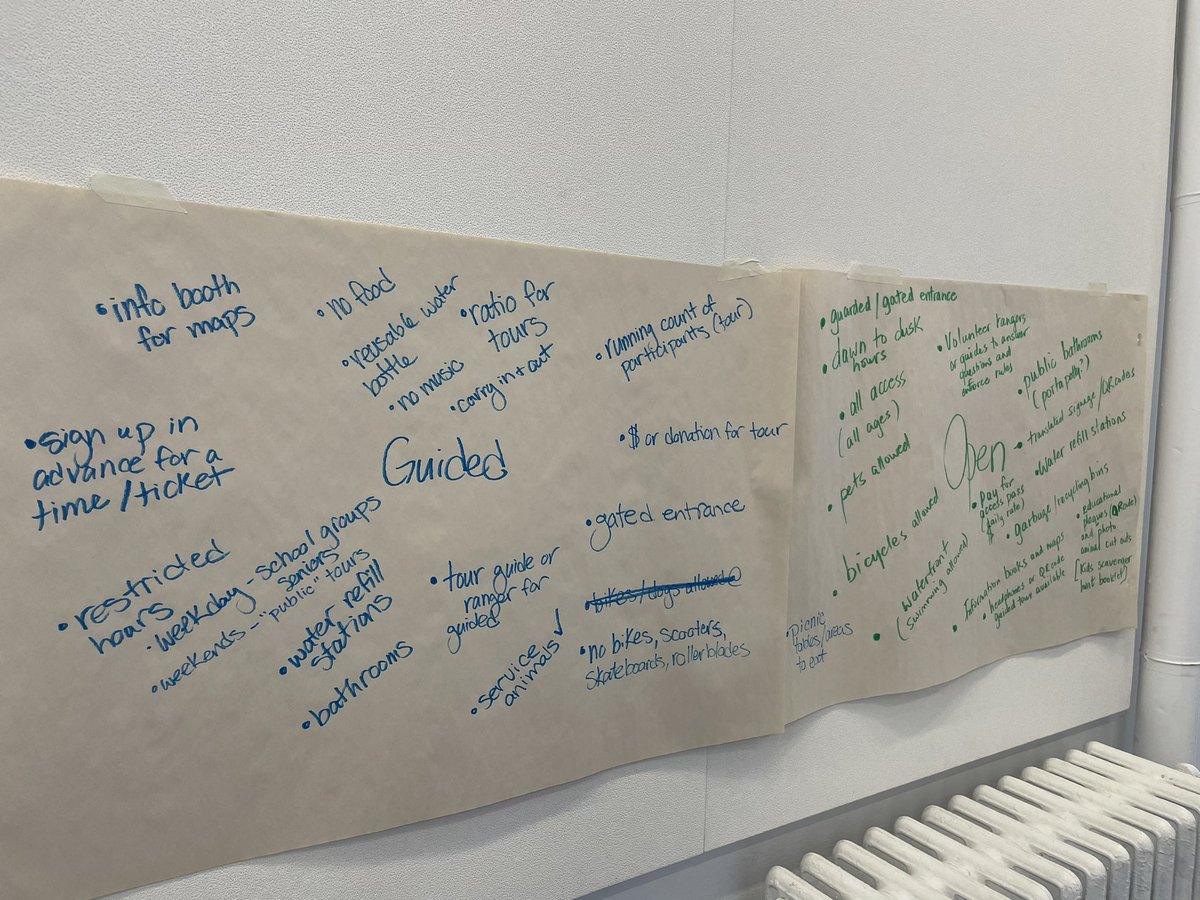 • info booth
for maps
• no food
• reusable water
bottle
• no music
• ratio for
tours
• carry in + out
• running count of
participants (tour)
• sign up in
advance for a
time/ticket
Guided
• $ or donation for tour
• gated entrance
• restricted
hours
• weekday - school groups
seniors
• weekends - "public" tours
• water refill
stations
• bathrooms
• tour guide or
ranger for
guided
• service
animals ✓
• bikes/dogs allowed
• no bikes, scooters,
skateboards, rollerblades
• guarded/gated entrance
• dawn to dusk
hours
• all access
(all ages)
• pets allowed
• bicycles allowed
• Volunteer rangers
or guides to answer
questions and
enforce rules
• public bathrooms
(porta potty?)
Open
• translated signage/QR codes
• Water refill stations
• Pay for
access pass
(daily rate)
$
• garbage/recycling bins
• educational
plaques (QR code)
and photo
animal cut outs
[Kids scavenger
hunt booklet]
• Waterfront
(swimming allowed)
• Information books and maps
headphones or QR code
• guided tour available
• Picnic
tables/areas
to eat